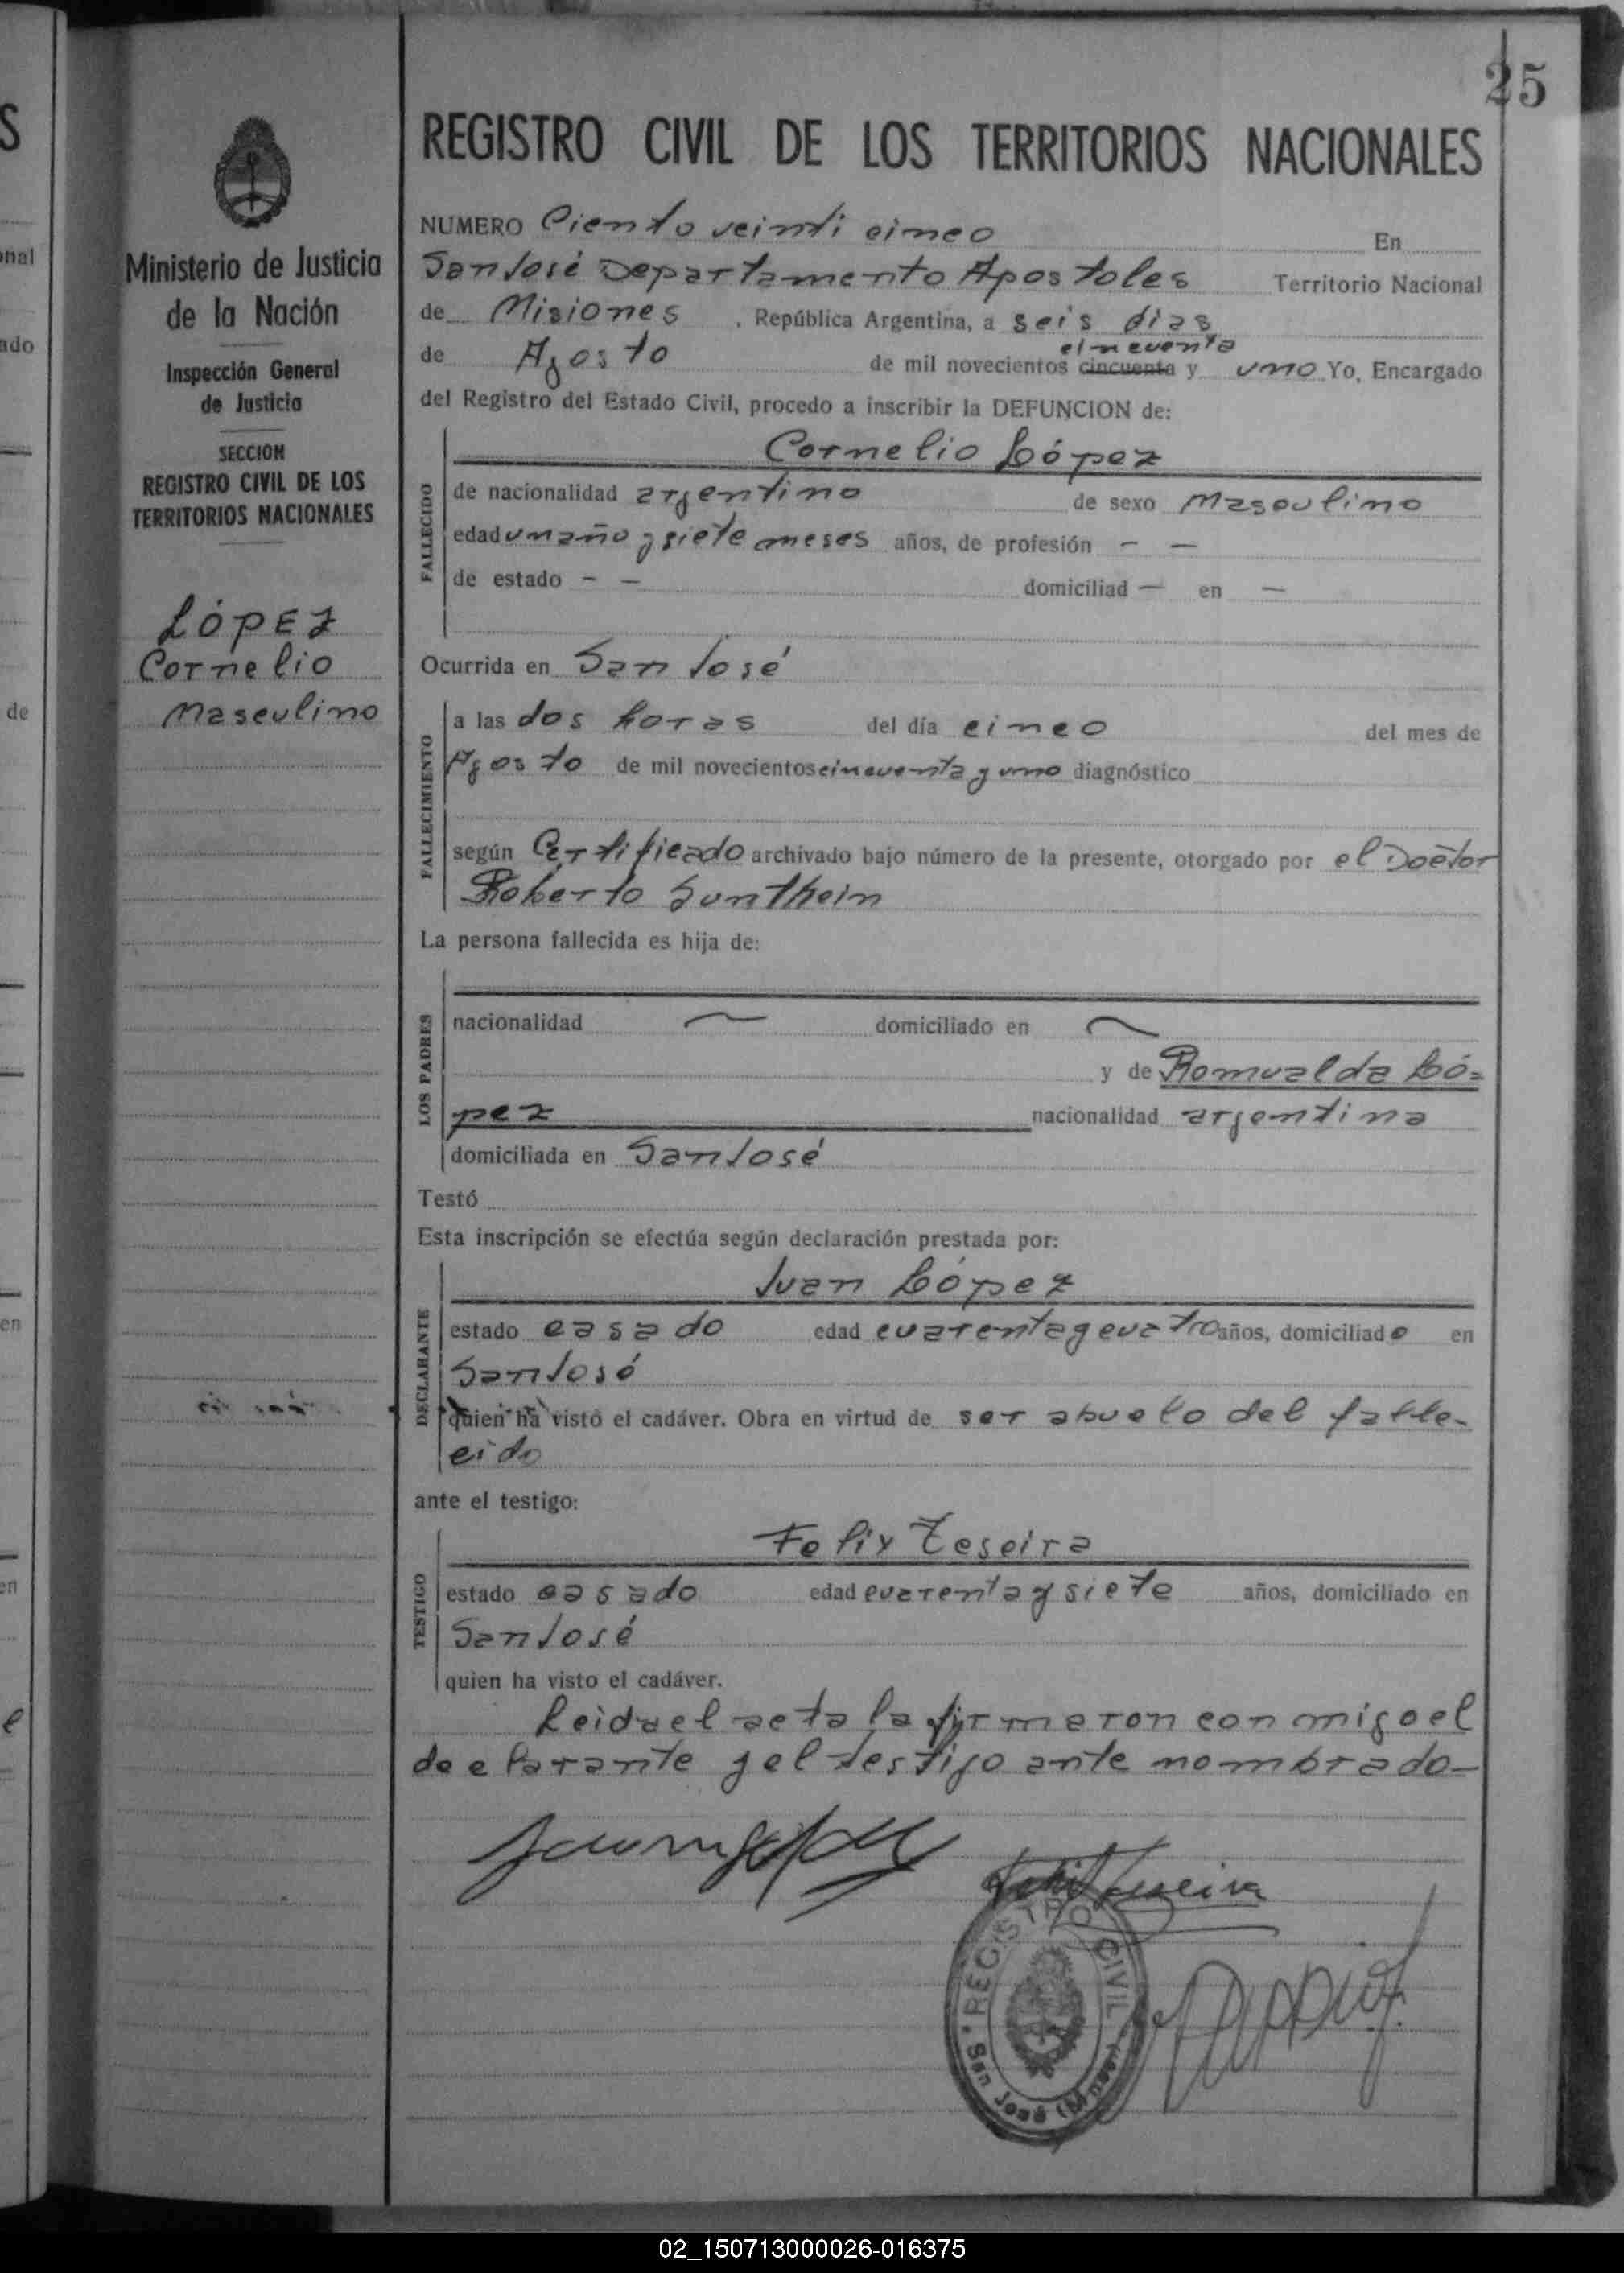 25
REGISTRO CIVIL DE LOS TERRITORIOS NACIONALES
Ministerio de Justicia
de la Nación
Inspección General
de Justicia
SECCION
REGISTRO CIVIL DE LOS
TERRITORIOS NACIONALES
LÓPEZ
Cornelio
Masculino
NUMERO Ciento veinti cinco En
San José Departamento Apostoles Territorio Nacional
de Misiones , República Argentina, a seis dias
cincuenta
de Agosto de mil novecientos cincuenta y uno Yo, Encargado
del Registro del Estado Civil, procedo a inscribir la DEFUNCION de:
FALLECIDO
Cornelio López
de nacionalidad argentino de sexo Masculino
edad un año y siete meses años, de profesión - -
de estado - - domiciliad - en -
Ocurrida en San José
FALLECIMIENTO
a las dos horas del día cinco del mes de
Agosto de mil novecientos cincuenta y uno diagnóstico
según Certificado archivado bajo número de la presente, otorgado por el Doctor
Roberto Sunthein
La persona fallecida es hija de:
LOS PADRES
nacionalidad domiciliado en
y de Romualda Ló=
pez nacionalidad argentina
domiciliada en San José
Testó
Esta inscripción se efectúa según declaración prestada por:
DECLARANTE
Juan López
estado casado edad cuarenta y cuatro años, domiciliado en
San José
quien ha visto el cadáver. Obra en virtud de ser abuelo del falle-
cido
ante el testigo:
TESTIGO
Felix Teseira
estado casado edad cuarenta y siete años, domiciliado en
San José
quien ha visto el cadáver.
Leida el acta la firmaron conmigo el
declarante y el testigo ante nombrado-
REGISTRO CIVIL
San José
02_150713000026-016375